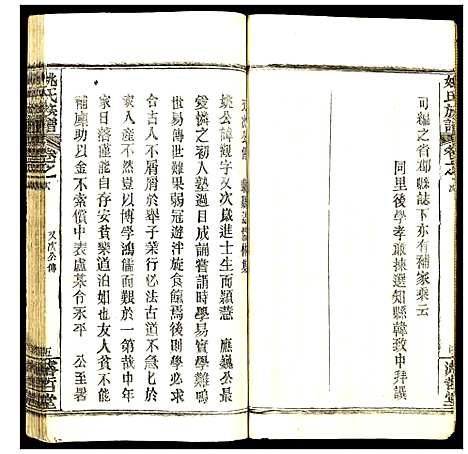 姚氏族譜
卷之
可編之省郡縣誌下亦有補家乘云
同里後學孝廉揀選知縣韓致中拜譔
濬哲堂
又次公傳
姚公諱觀字又次歲進士生而穎慧 應巍公最
愛憐之初入塾過目成誦嘗語時學易實學難鳴
世易傳世難果弱冠遊泮旋食餼焉總制學必求
合古人不屑屑於舉子業行行必法古道不急急於
家人產不然豈以博學鴻儒而艱於一第哉中年
家日落僅能自存安貧樂道泊如也友人貧不能
補廩助以金不索償中表盧某令永平 公至署
姚氏族譜
卷之
又次公傳
五
濬哲堂